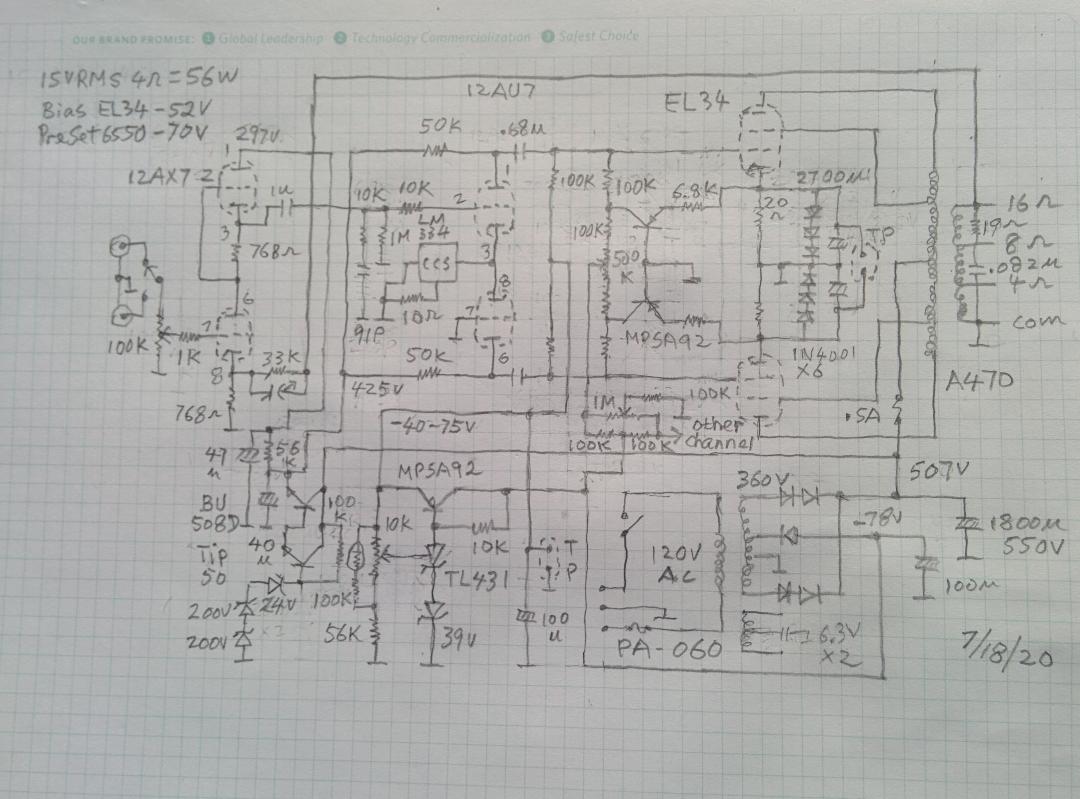 OUR BRAND PROMISE: 1 Global Leadership 2 Technology Commercialization 3 Safest Choice
15VRMS 4Ω = 56W
Bias EL34 -52V
PreSet 6550 -70V
12AU7
EL34
297V
1
50K
.68μ
12AX7
2
1μ
10K
10K
2
100K
100K
6.8K
2700μ
20Ω
TP
16Ω
19Ω
8Ω
.082μ
4Ω
com
3
768Ω
1M
LM
334
CCS
3
100K
500
K
8
10Ω
91P
7
6
7
1K
100K
8
33K
50K
6
MPSA92
1N4001
X6
A470
768Ω
425V
-40~75V
1M
100K
100K
100K
other
channel
.5A
47
μ
56
K
MPSA92
360V
507V
BU
508D
100
K
10K
10K
-78V
1800μ
550V
TIP
50
40
μ
120V
AC
T
P
TL431
100μ
200V
24V
100K
200V
56K
39V
100
μ
PA-060
6.3V
X2
7/18/20